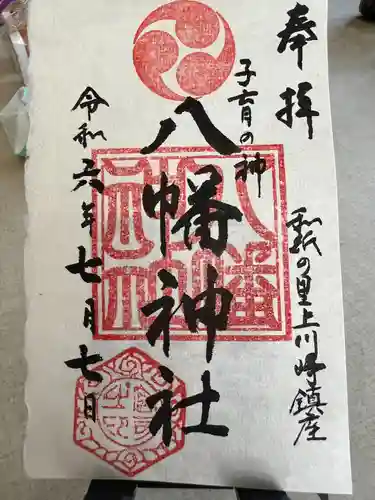 奉拝
和紙の里上川崎鎮座
子育の神
八幡神社
令和六年七月七日